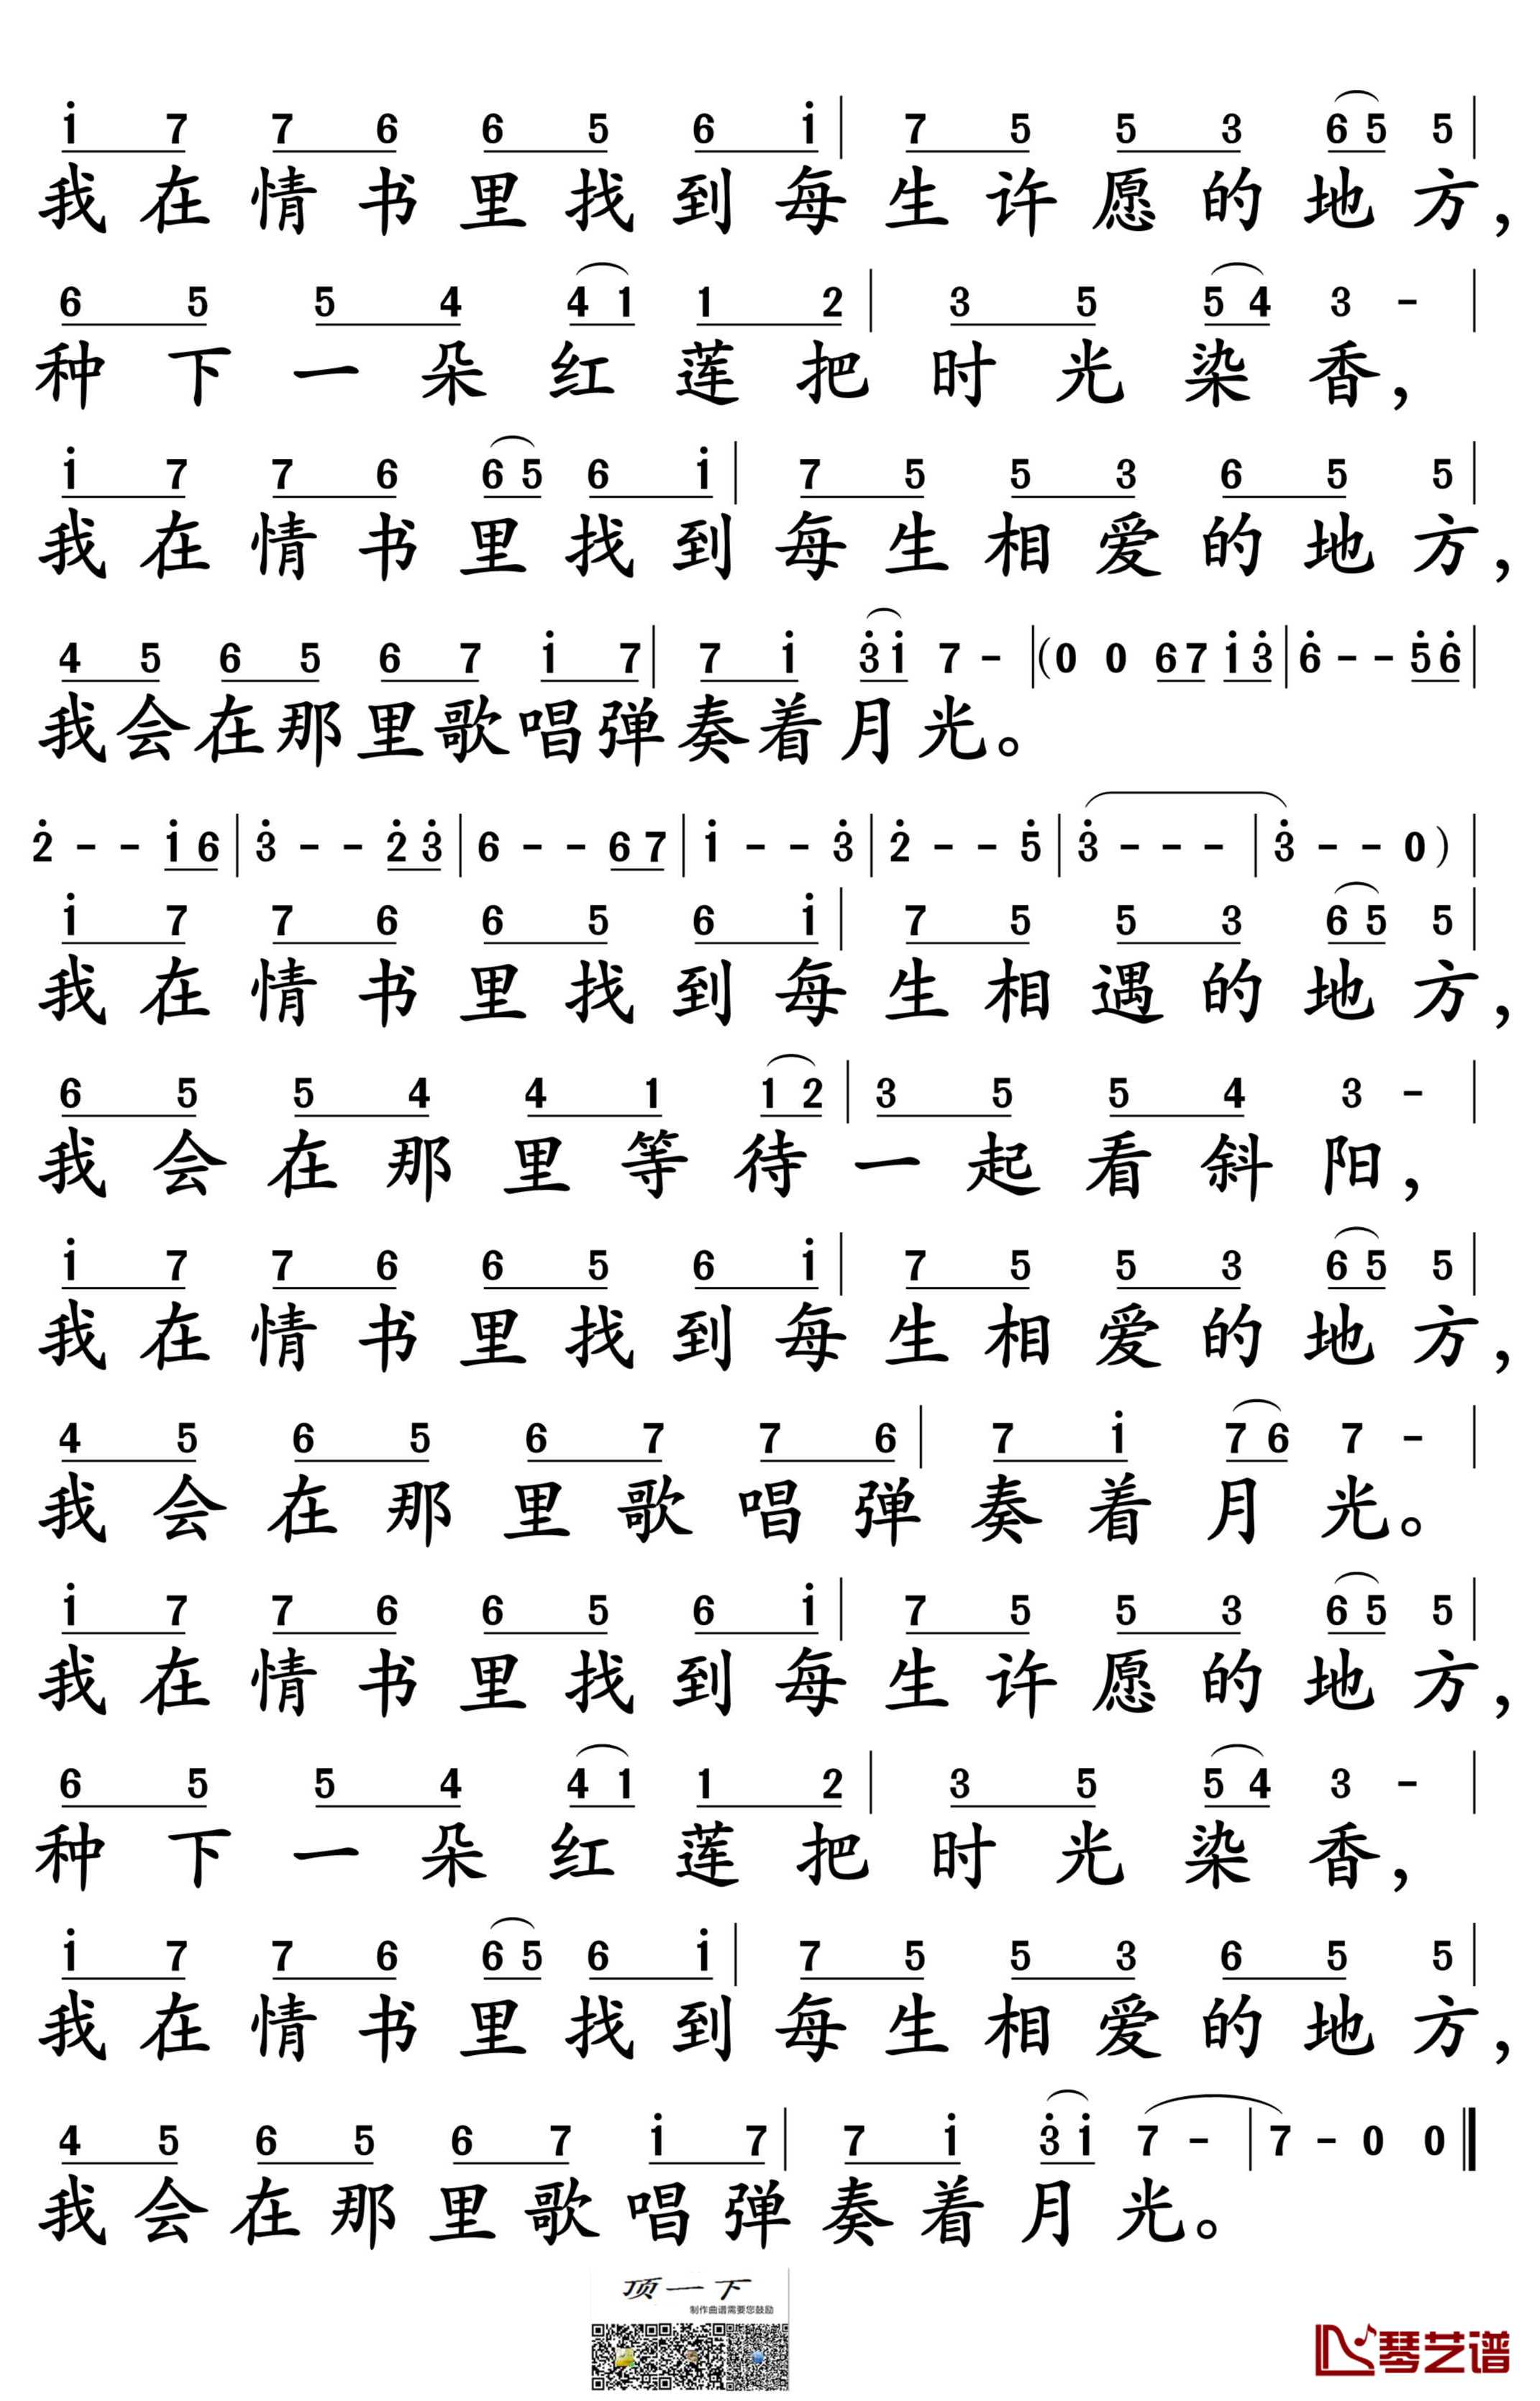 i 7 7 6 6 5 6 i | 7 5 5 3 6 5 5 |
我在情书里找到每生许愿的地方，
6 5 5 4 4 1 1 2 | 3 5 5 4 3 - |
种下一朵红莲把时光染香，
i 7 7 6 6 5 6 i | 7 5 5 3 6 5 5 |
我在情书里找到每生相爱的地方，
4 5 6 5 6 7 i 7 | 7 i 3̇ i 7 - | (0 0 6 7 i 3̇ | 6̇ - - 5̇ 6̇ |
我会在那里歌唱弹奏着月光。
2̇ - - i 6 | 3̇ - - 2̇ 3̇ | 6 - - 6 7 | i - - 3̇ | 2̇ - - 5̇ | 3̇ - - - | 3̇ - - 0 ) |
i 7 7 6 6 5 6 i | 7 5 5 3 6 5 5 |
我在情书里找到每生相遇的地方，
6 5 5 4 4 1 1 2 | 3 5 5 4 3 - |
我会在那里等待一起看斜阳，
i 7 7 6 6 5 6 i | 7 5 5 3 6 5 5 |
我在情书里找到每生相爱的地方，
4 5 6 5 6 7 7 6 | 7 i 7 6 7 - |
我会在那里歌唱弹奏着月光。
i 7 7 6 6 5 6 i | 7 5 5 3 6 5 5 |
我在情书里找到每生许愿的地方，
6 5 5 4 4 1 1 2 | 3 5 5 4 3 - |
种下一朵红莲把时光染香，
i 7 7 6 6 5 6 i | 7 5 5 3 6 5 5 |
我在情书里找到每生相爱的地方，
4 5 6 5 6 7 i 7 | 7 i 3̇ i 7 - | 7 - 0 0 ‖
我会在那里歌唱弹奏着月光。
顶一下
制作曲谱需要您鼓励
琴艺谱